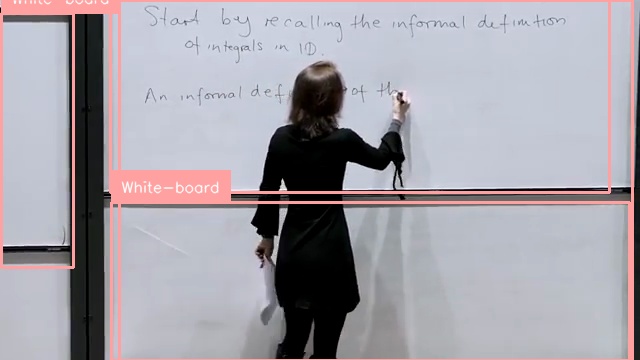 White-board
Start by recalling the informal definition
of integrals in 1D.
An informal of th
White-board